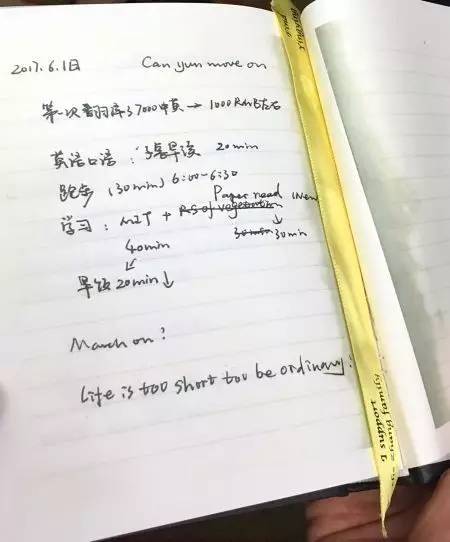 2017.6.1日 Can yun move on
第一次 7000中真 → 1000RMB左右
英语口语: 早读 20min
跑步 (30min) 6:00-6:30
Paper read
学习: MIT + RS of vegetation
40min 30min 30min
↙
早饭 20min ↓
March on!
Life is too short tou be ordinary!
I support
Zhang family